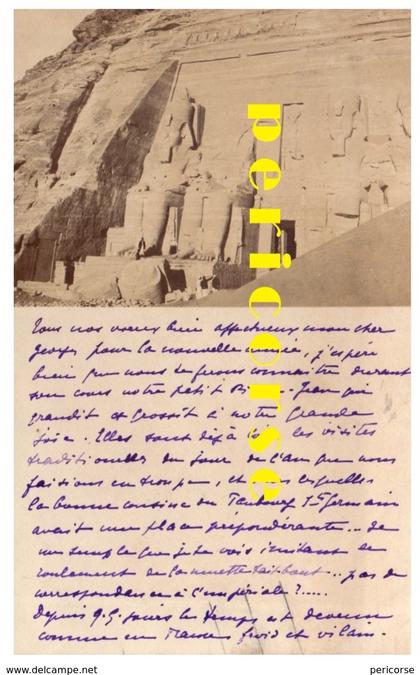 pericorse
Tous nos voeux bien affectueux mon cher
Georges pour la nouvelle année, j'espère
bien que nous te ferons connaitre durant
son cours notre petit Jean qui
grandit et grossit à notre grande
joie. Elles sont déjà les visites
traditionelles du jour de l'an que nous
faisions en troupe, et les quelles
la bonne cousine du Faubourg St Germain
avait une place prépondérante... de
me semble que je te vois imitant le
roulement de la ... pas de
correspondance à l'impériale ?.....
Depuis q.q. jours le temps est devenu
comme en France froid et vilain.
pericorse